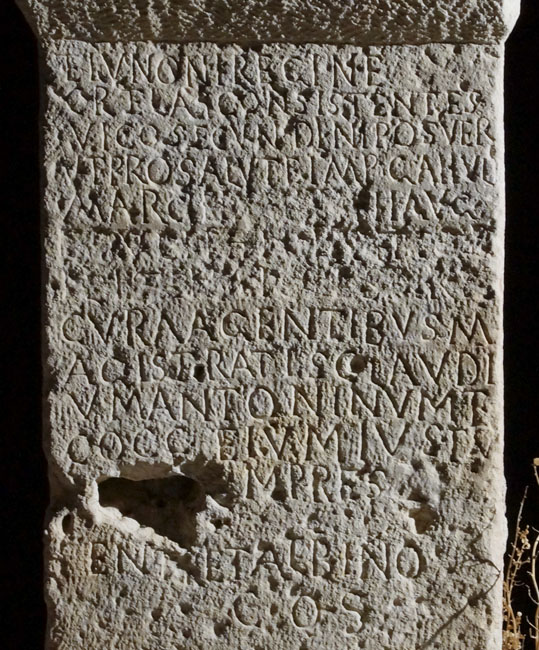 E IVNONI REGINE
CONSISTENTES
VICO SECVNDINI POSVER
VT PRO SALVTE IMP CA IVL
MARCI AVG
CVRA AGENTIBVS M
AGISTRATIS CLAVDI
VM ANTONINVM ET
COCCEIVM IVSTV
M PRES
ENTE ET ALBINO
COS